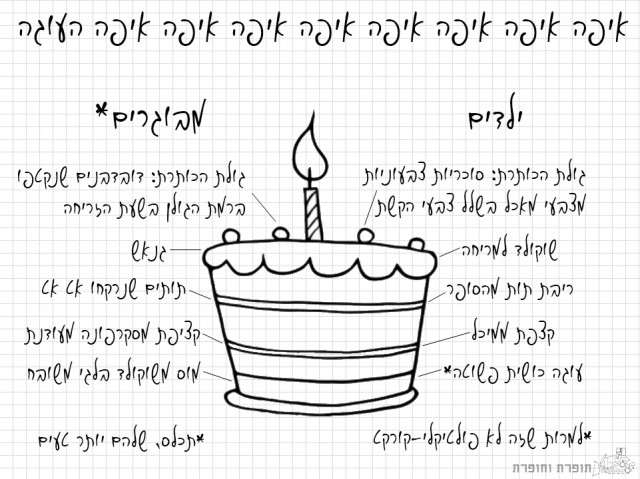 איפה איפה איפה איפה איפה איפה איפה איפה העוגה
ילדים
מבוגרים*
גולת הכותרת: סוכריות צבעוניות
מצבעי מאכל בשלל צבעי הקשת
שוקולד למריחה
ריבת תות מהסופר
קצפת ממיכל
עוגה כושית פשוטה*
*למרות שזה לא פוליטיקלי-קורקט
גולת הכותרת: דובדבנים שנקטפו
ברמת הגולן בשעת הזריחה
גנאש
תותים שנרקחו אט אט
קציפת מסקרפונה מעודנת
מוס משוקולד בלגי משובח
*תכלס, שלהם יותר טעים
תופרת וחופרת